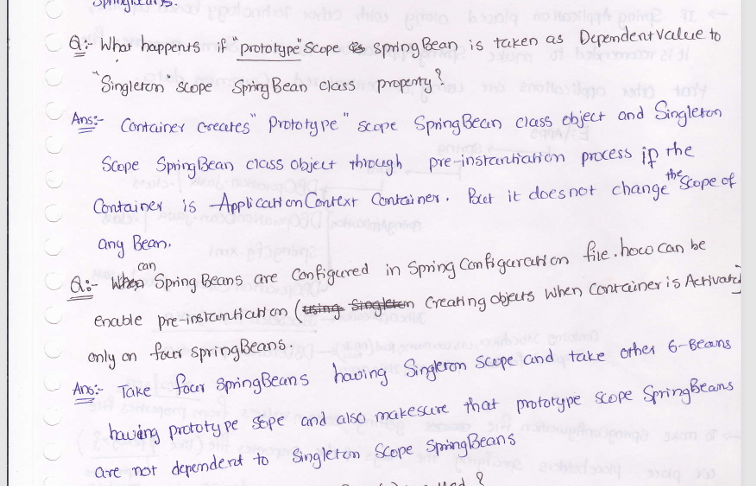 Q:- What happents if "prototype" scope spring Bean is taken as Dependent value to
"Singleton" scope Spring Bean class property?
Ans:- Container creates "Prototype" scope Spring Bean class object and Singleton
Scope Spring Bean class object through pre-instantiation process if the
Container is ApplicationContext Container. But it does not change the scope of
any Bean.
Q:- When can Spring Beans are configured in Spring Configuration file. how can be
enable pre-instantiation (using Singleton Creating objects when Container is Activated)
only on four spring Beans.
Ans:- Take four spring Beans having Singleton scope and take other 6-Beans
having prototype sope and also makesure that prototype scope Spring Beans
are not dependent to Singleton Scope Spring Beans
?